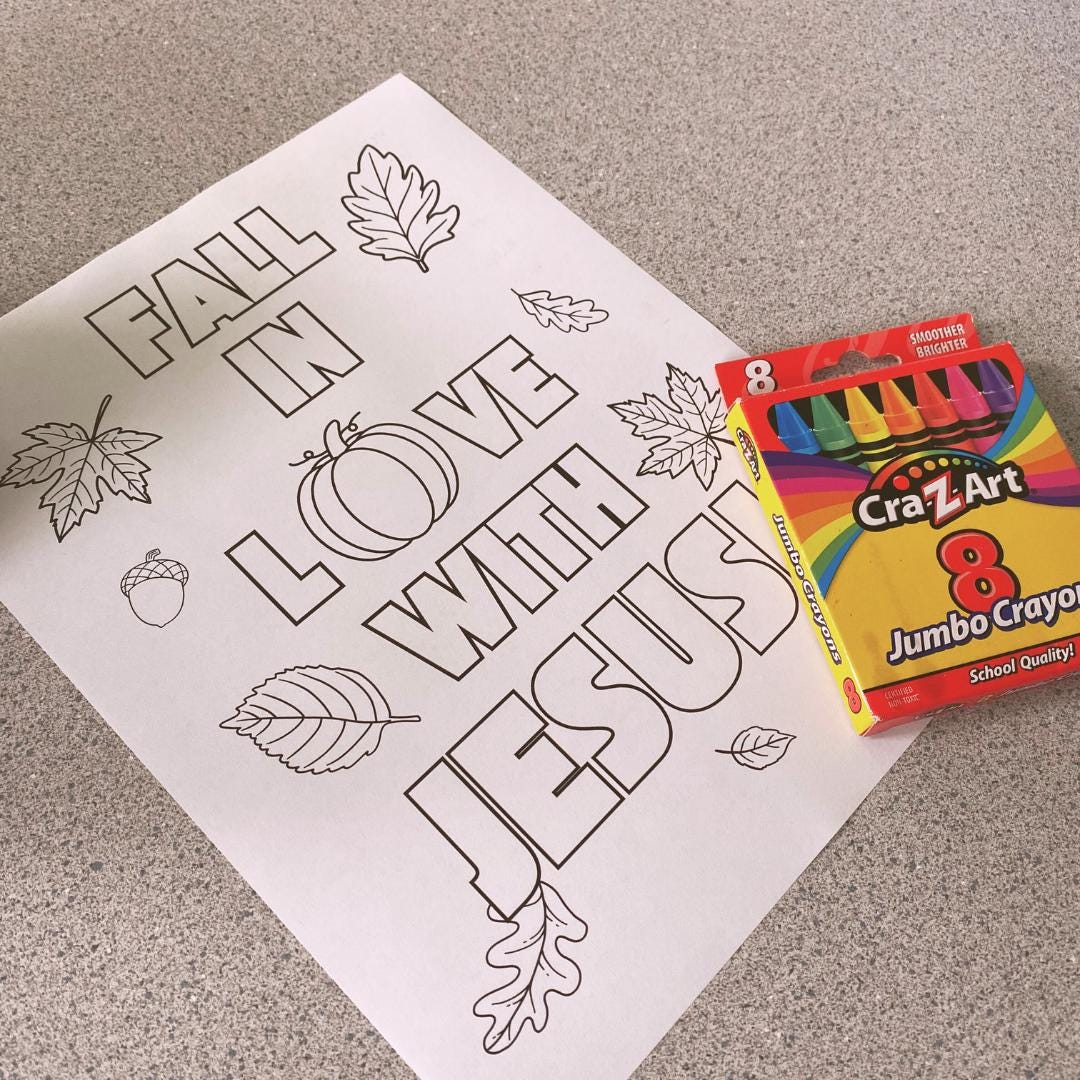 FALL
IN
LOVE
WITH
JESUS
8
SMOOTHER
BRIGHTER
Cra-Z-Art
8
Jumbo Crayon
School Quality!
Cra-Z-Art
Jumbo Crayons
8
CERTIFIED
NON-TOXIC